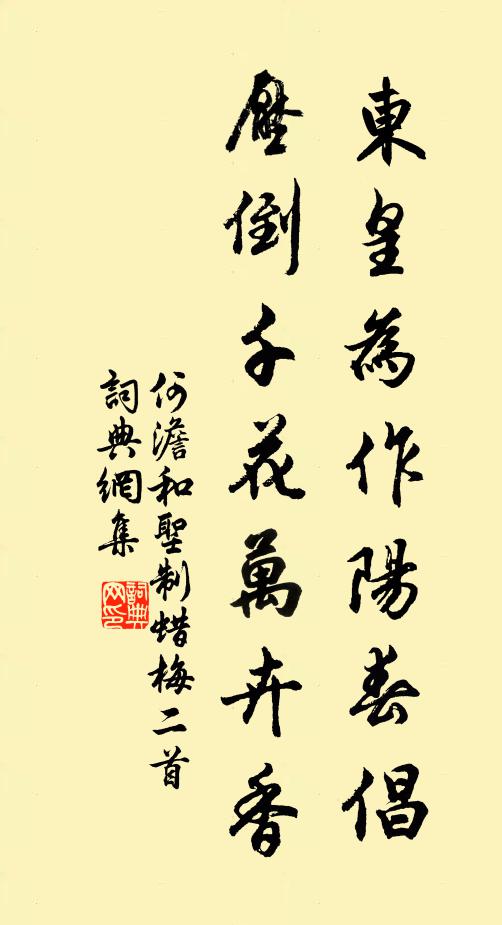 東皇為作陽春倡
壓倒千花萬卉香
何澹和聖制蜡梅二首
詞典網集
詞典网印